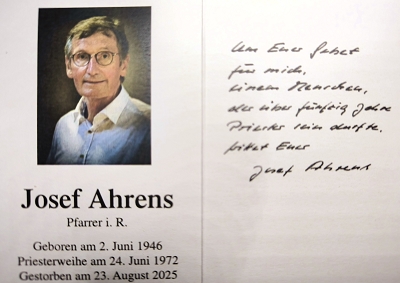 Josef Ahrens
Pfarrer i. R.
Geboren am 2. Juni 1946
Priesterweihe am 24. Juni 1972
Gestorben am 23. August 2025
Um Euer Gebet
für mich,
einem Menschen,
der über fünfzig Jahre
Priester sein durfte,
bittet Euer
Josef Ahrens